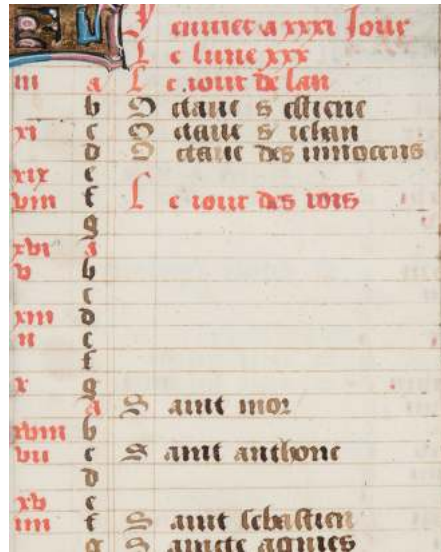 KL Jenvier a xxxi Jour
L e lune xxx
iii a L e iour de lan
b O ctaue s estiene
xi c O ctaue s iehan
d O ctaue des innocens
xix e
viii f L e iour des rois
g
xvi a
v b
c
xiii d
ii e
f
x g
a S aint mor
xviii b
vii c S aint anthone
d
xv e
iiii f S aint sebastien
g S aincte agnies